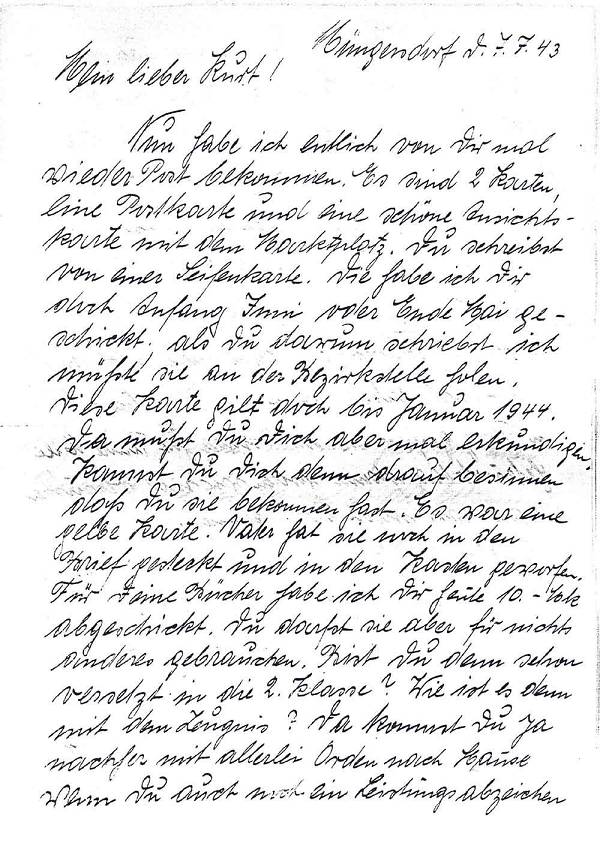 Müngersdorf d. 7.7.43
Mein lieber Kurt!
Nun habe ich entlich von Dir mal
wieder Post bekommen. Es sind 2 Karten,
eine Postkarte und eine schöne Ansichts-
karte mit dem Marktplatz. Du schreibst
von einer Seifenkarte. Die habe ich Dir
doch Anfang Juni oder Ende Mai ge-
schickt, als Du darum schriebst ich
müßte sie an der Bezirkstelle holen.
Diese Karte gilt doch bis Januar 1944.
Da mußt Du Dich aber mal erkundigen.
Kannst Du Dich denn darauf besinnen
daß Du sie bekommen hast. Es war eine
gelbe Karte. Vater hat sie noch in den
Brief gesteckt und in den Kasten geworfen.
Für Deine Bücher habe ich Dir heute 10.-
abgeschickt. Du darfst sie aber für nichts
anderes gebrauchen. Bist Du denn schon
versetzt in die 2. Klasse? Wie ist es denn
mit dem Zeugnis? Da kommst Du ja
nachher mit allerlei Orden nach Hause
wenn Du auch noch ein Leistungsabzeichen